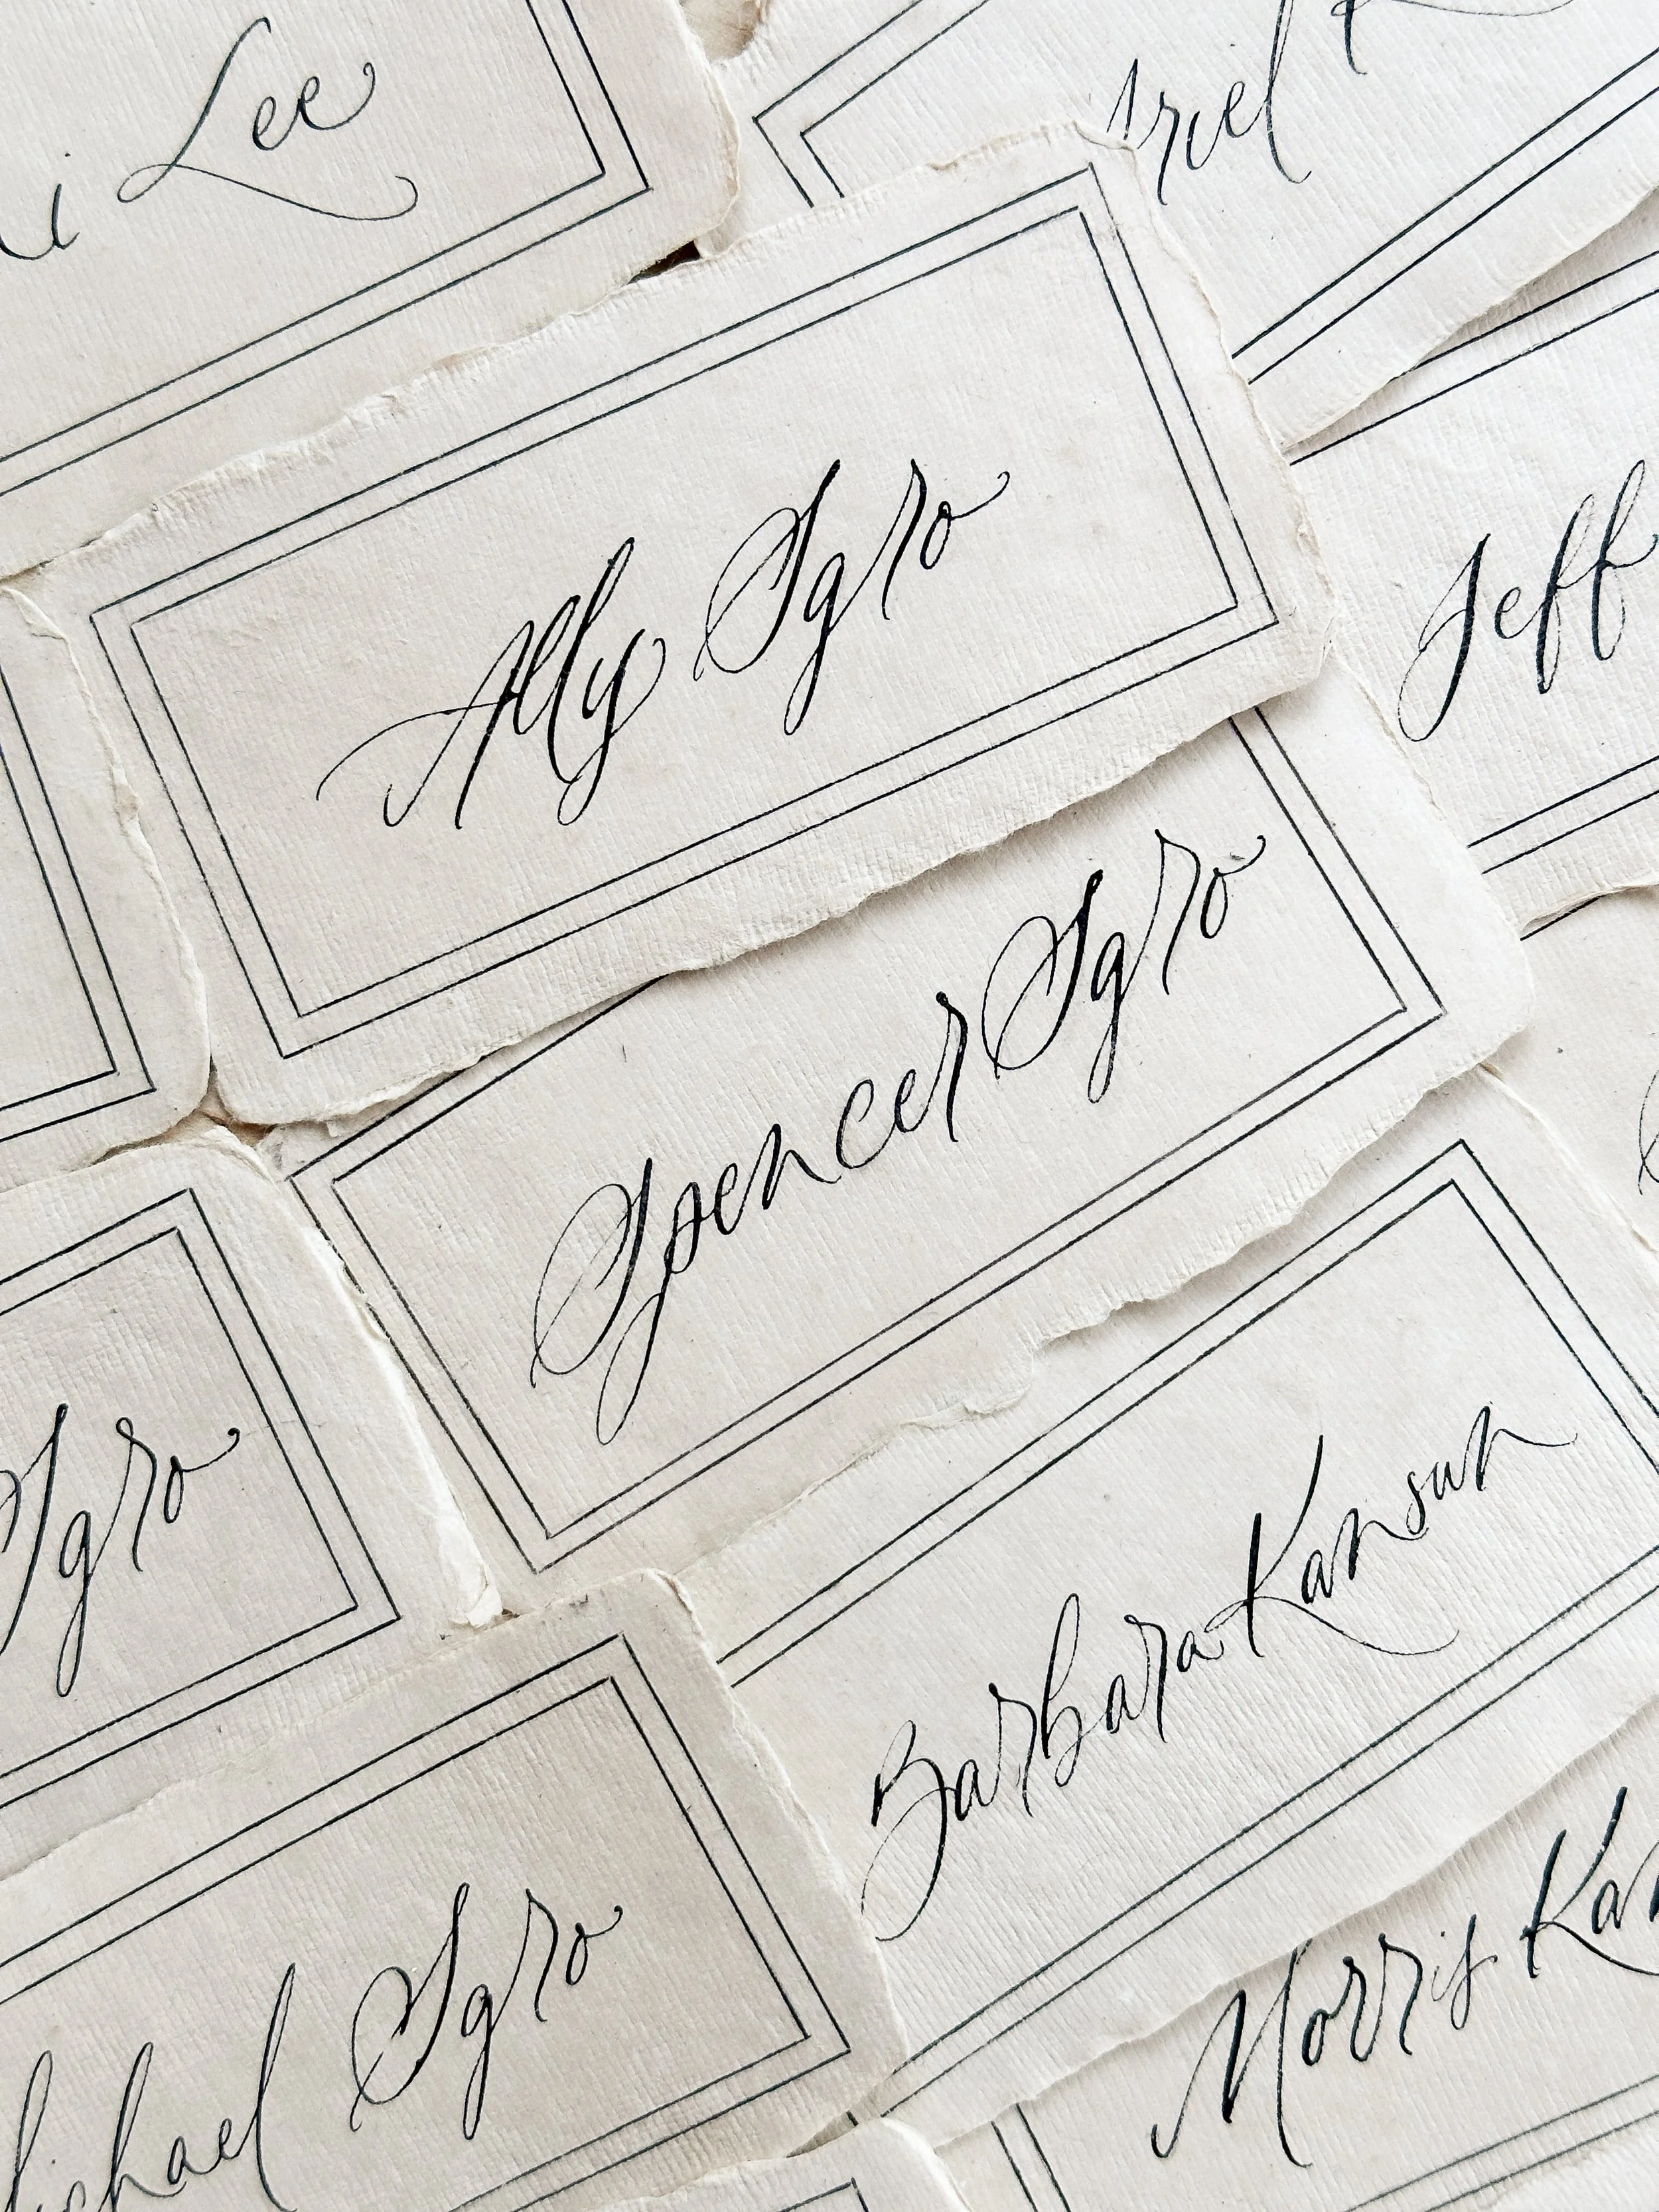 Lee
Ally Sgro
Jeff
Spencer Sgro
Sgro
Barbara Kansun
Michael Sgro
Morris